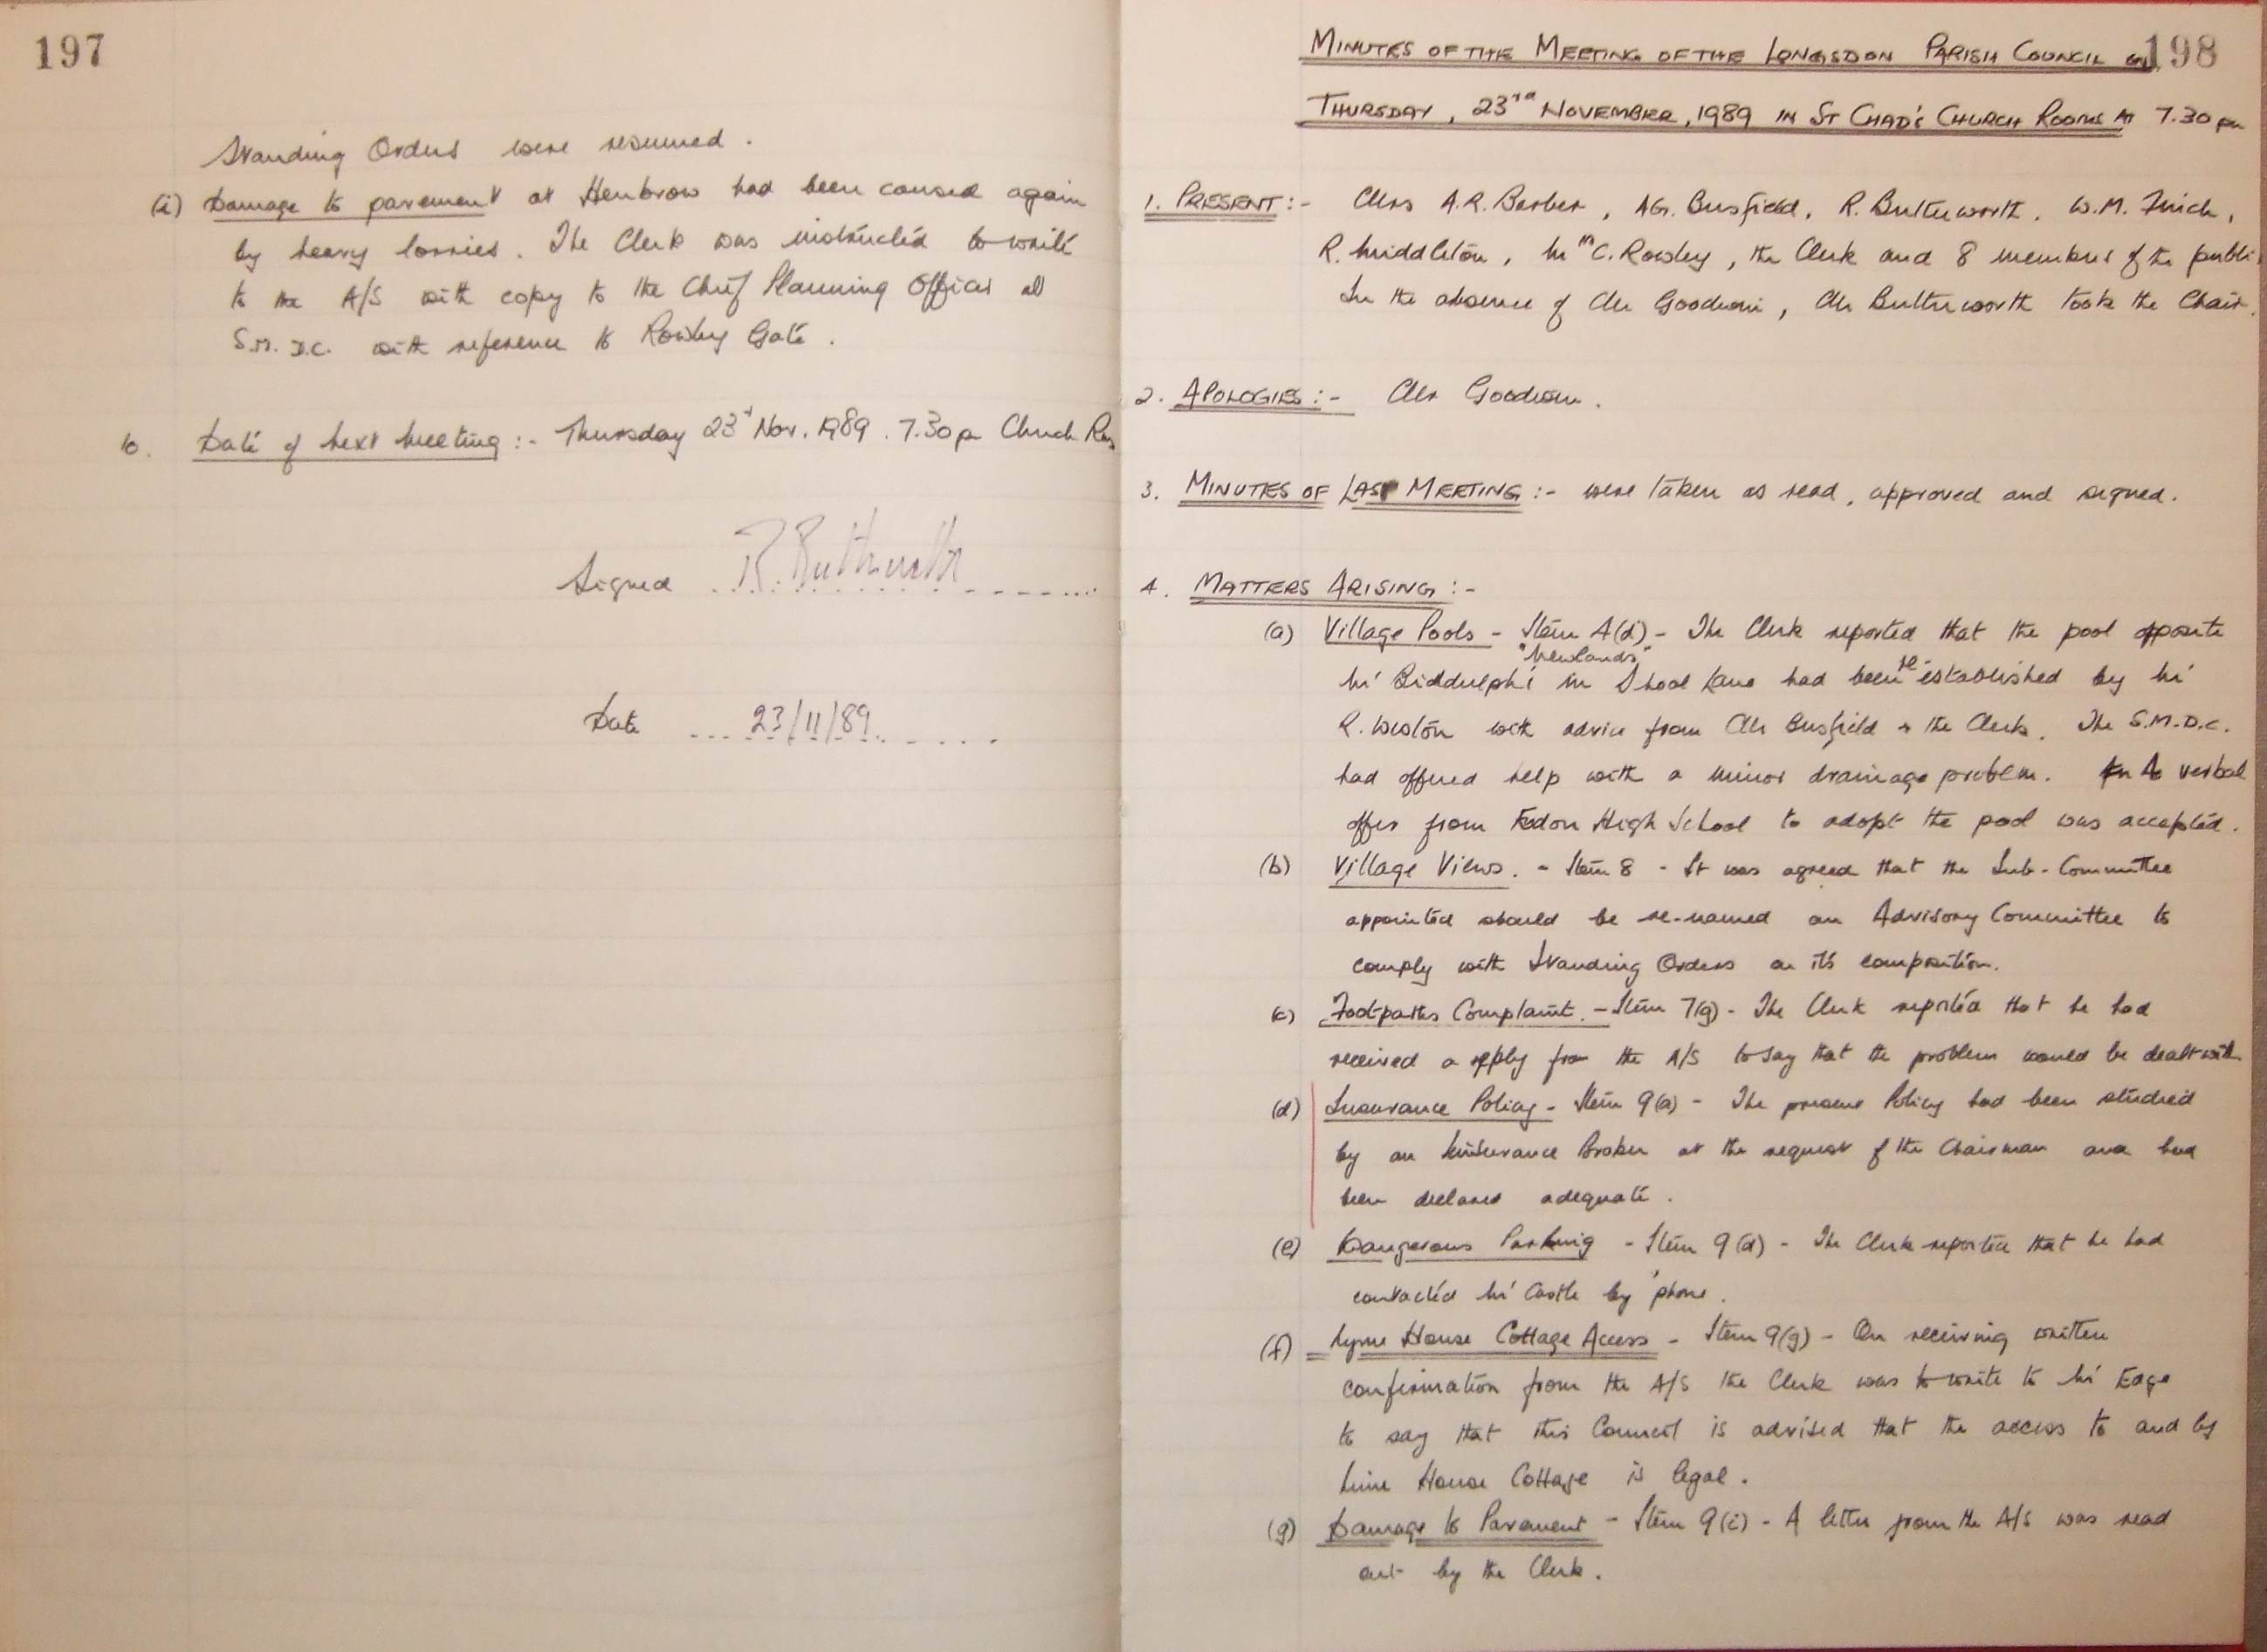 197
Standing Orders were resumed.
(i) Damage to pavement at Henbrow had been caused again
by heavy lorries. The Clerk was instructed to write
to the A/S with copy to the Chief Planning Officer at
S.M.D.C. with reference to Rowley Gate.
10. Date of Next Meeting :- Thursday 23rd Nov. 1989. 7.30p Church Rms
Signed R. Butterworth
Date 23/11/89
198
MINUTES OF THE MEETING OF THE LONGSDON PARISH COUNCIL on
THURSDAY, 23rd NOVEMBER, 1989 IN ST CHAD'S CHURCH ROOMS AT 7.30 pm
1. PRESENT :- Cllrs A.R. Barber, A.G. Busfield, R. Butterworth, W.M. Finch,
R. Middleton, C. Rowley, the Clerk and 8 members of the public
In the absence of Cllr Goodwin, Cllr Butterworth took the Chair.
2. APOLOGIES :- Cllr Goodwin.
3. MINUTES OF LAST MEETING :- were taken as read, approved and signed.
4. MATTERS ARISING :-
(a) Village Pools - Item 4(d) - The Clerk reported that the pool opposite
"Newlands"
Mr Biddulph's in School Lane had been re-established by Mr
R. Weston with advice from Cllr Busfield & the Clerk. The S.M.D.C.
had offered help with a minor drainage problem. A verbal
offer from Endon High School to adopt the pool was accepted.
(b) Village Views. - Item 8 - It was agreed that the Sub-Committee
appointed should be re-named an Advisory Committee to
comply with Standing Orders on its composition.
(c) Footpaths Complaint. - Item 7(g) - The Clerk reported that he had
received a reply from the A/S to say that the problem would be dealt with.
(d) Insurance Policy - Item 9(a) - The present Policy had been studied
by an Insurance Broker at the request of the Chairman and had
been declared adequate.
(e) Dangerous Parking - Item 9(d) - The Clerk reported that he had
contacted Mr Castle by 'phone.
(f) Lyme House Cottage Access - Item 9(g) - On receiving written
confirmation from the A/S the Clerk was to write to Mr Edge
to say that this Council is advised that the access to and by
Lime House Cottage is legal.
(g) Damage to Pavement - Item 9(i) - A letter from the A/S was read
out by the Clerk.